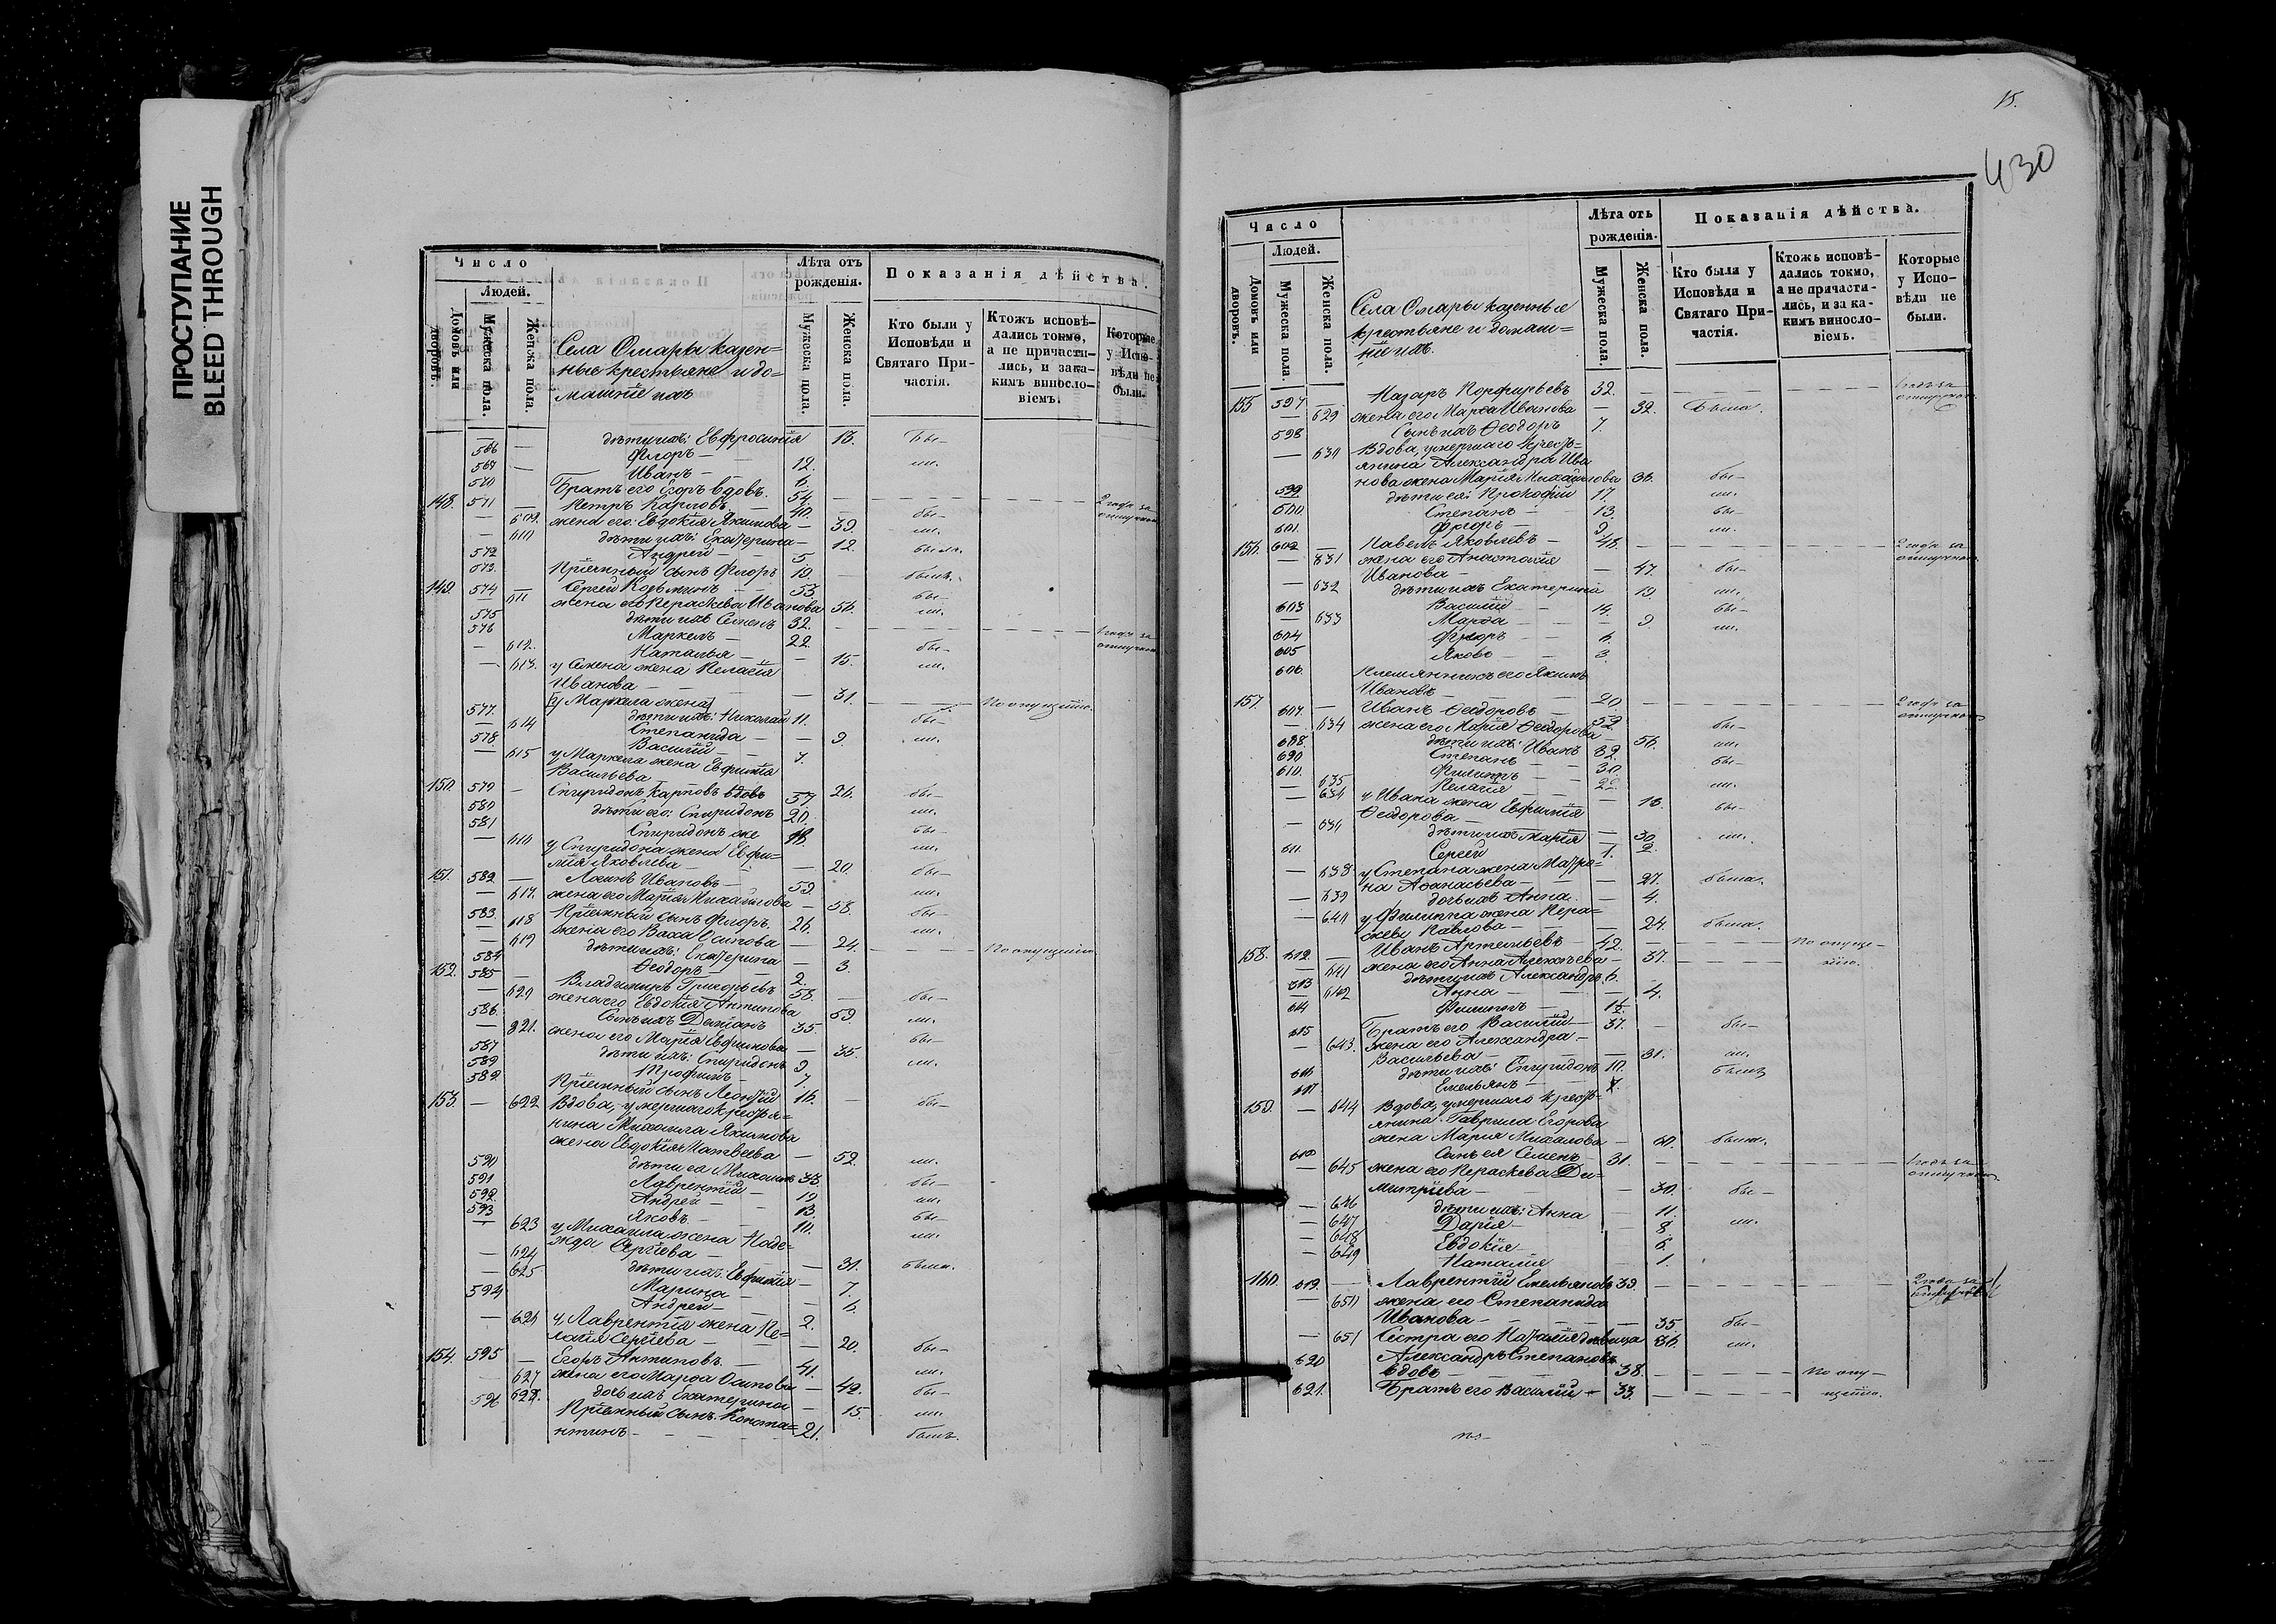 ПРОСТУПАНИЕ
BLEED THROUGH
Число
Людей.
Домовъ или дворовъ.
Мужеска пола.
Женска пола.
Села Омары казен=
ные крестьяне и до=
машніе ихъ
Лѣта отъ рожденія.
Мужеска пола.
Женска пола.
Показанія дѣйства.
Кто были у Исповѣди и Святаго Причастія.
Ктожъ исповѣдались токмо, а не причастились, и за какимъ винословіемъ.
Которые у Исповѣди не были.
дѣти ихъ: Евфросинія 13. бы-
566 Флоръ 12. ли.
567 Иванъ 6.
570 Братъ его Егоръ вдовъ. 54.
148. 571 Петръ Карповъ 40. 2 года за отлучкою
609. жена его: Евдокія Якимова 39 бы-
610 дѣти ихъ: Екатерина 12. ли.
572 Андрей 5
573. Пріемный сынъ Флоръ 19. былъ.
149. 574 Сергей Козьминъ 53 бы-
611 жена его Параскева Иванова 56. ли.
575 дѣти ихъ Семенъ 32.
576 Маркелъ 22.
612. Наталья 15. бы-
613. у Семена жена Пелагія ли.
Иванова 31.
[у Маркела жена]
577. дѣти ихъ: Николай 11. бы-
614 Степанида 9. ли.
578. Василій 7.
615 у Маркела жена Евфимія
Васильева 26. бы-
150. 579 Спиридонъ Карповъ вдовъ 57. ли.
580 дѣти его: Спиридонъ 20. бы-
581 Спиридонъ же 18. ли.
у Спиридона жена Евфи=
мія Яковлева 20. бы-
151. 582 Логинъ Ивановъ 59. ли.
617. жена его Марія Михайлова 58. бы-
583. Пріемный сынъ Флоръ 26. ли.
618 жена его Васса Осипова 24.
619 дѣти ихъ: Екатерина 3.
584 Ѳеодоръ 2.
152. 585 Владимиръ Григорьевъ 58. бы-
620 жена его Евдокія Антипова 59. ли.
586. Сынъ ихъ Даміанъ 35. бы-
621. жена его Марія Евфимова 35. ли.
587 дѣти ихъ: Спиридонъ 9
Трофимъ 7.
589. Пріемный сынъ Леонтій 16. бы-
153. 622 Вдова, умершаго крестья=
нина Михаила Якимова
жена Евдокія Матвеева 52. ли.
590 дѣти ея Михаилъ 33. бы-
591 Лаврентій 19 ли.
592. Андрей 13 бы-
593 Яковъ 10. ли.
623 у Михаила жена Наде=
жда Сергіева 31. была.
624 дѣти ихъ: Евфимія 7.
625 Марина 6.
594 Андрей 2.
у Лаврентія жена Пе=
лагія Сергіева 20. бы-
154. 595 Егоръ Антиповъ. 41. ли.
627 жена его Марѳа Осипова 42. бы-
628. дочь ихъ Екатерина 15. ли.
596 Пріемный сынъ Конста=
нтинъ 21. былъ.
15.
430
Число
Людей.
Домовъ или дворовъ.
Мужеска пола.
Женска пола.
Села Омары казенные
крестьяне и домаш=
ніе ихъ.
Лѣта отъ рожденія.
Мужеска пола.
Женска пола.
Показанія дѣйства.
Кто были у Исповѣди и Святаго Причастія.
Ктожъ исповѣдались токмо, а не причастились, и за какимъ винословіемъ.
Которые у Исповѣди не были.
155 597 Назаръ Порфирьевъ 32. 1 годъ за отлучкою.
629 жена его Марѳа Иванова 32. Была.
598 Сынъ ихъ Ѳеодоръ 7.
630 Вдова, умершаго кресть=
янина Александра Ива
нова жена Марія Михайлова 36. бы-
599 дѣти ея: Прокофій 17. ли.
600 Степанъ 13. бы-
601. Флоръ 9. ли.
156. 602 Павелъ Яковлевъ 48. 2 года за отлучкою
631 жена его Анастасія
Иванова 47. бы-
632 дѣти ихъ Екатерина 19. ли.
603 Василій 14. бы-
633 Марѳа 9. ли.
604 Флоръ 6.
605 Яковъ 3.
606. Племянникъ его Якимъ
Ивановъ 20.
157. 607. Иванъ Ѳеодоровъ 59. 2 года за отлучкою
634 жена его Марія Ѳеодорова 56. бы-
608. дѣти ихъ: Иванъ 32. ли.
Степанъ 30. бы-
610. Филиппъ 22. ли.
635 Пелагія 16. бы-
у Ивана жена Евфимія
Ѳеодорова 30. ли.
дѣти ихъ Марія 2.
611. Сергей 1.
638 у Степана жена Матро=
на Аѳанасьева 27. была.
639 дочь ихъ Анна. 4.
640 у Филиппа жена Пара=
скева Павлова 24. была.
158. 612. Иванъ Артемьевъ 42. По опуще-
641 жена его Анна Алексѣева 37. нію.
613 дѣти ихъ Александръ 6.
642 Анна 4.
614 Филиппъ 1½.
615 Братъ его Василій 37. бы-
643. жена его Александра
Васильева 31. ли.
616 дѣти ихъ: Спиридонъ 10. былъ
617 Емельянъ
159. 644 Вдова, умершаго кресть=
янина Гаврила Егорова
жена Марія Михайлова 60. была.
618 Сынъ ея Семенъ 31. 1 годъ за отлучкою.
645 жена его Параскева Ди=
митріева 30. бы-
646 дѣти ихъ: Анна 11. ли.
647 Дарія 8.
648 Евдокія 5.
649 Наталія 1.
160. 619. Лаврентій Емельяновъ 39. 2 года за
650 жена его Степанида
Иванова 35 бы-
651 Сестра его Наталія дѣвица 36. ли.
620 Александръ Степановъ
вдовъ 38. По опу-
621. Братъ его Василій 33. щенію.